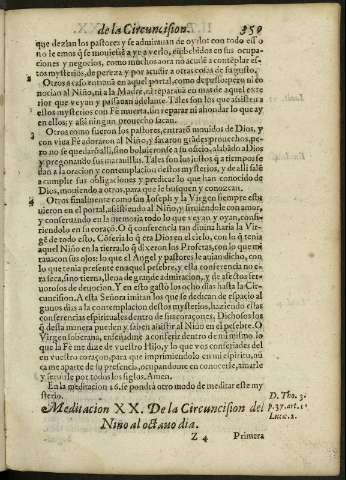 de la Circuncision. 359
que dezian los pastores y se admirauan de oyrlos con todo esso
no leemos q̃ se mouiessẽ a yr a verlo, embebidos en sus ocupa
ciones y negocios, como muchos aora no acudẽ a contẽplar es-
tos mysterios, de pereza y por acudir a otras cosas de su gusto.
Otros a caso entrarõ en aquel portal, como de passo pero ni co
nocian al Niño, ni a la Madre, ni reparauã en mas de aquel exte
rior que veyan y passauan adelante. Tales son los que assisten a
estos mysterios con Fè muerta, sin reparar ni ahondar lo que ay
en ellos; y assi ningun prouecho sacan.
Otros como fueron los pastores, entrarõ mouidos de Dios, y
con viua Fè adoraron al Niño, y sacaron grãdes prouechos, pe-
ro no se quedarõ alli, sino boluieronse a su oficio, alabãdo a Dios
y pregonando sus marauillas. Tales son los justos q̃ a tiempos se
dan a la oracion y contemplacion destos mysterios, y de alli salẽ
a cumplir sus obligaciones y predicar lo que han conocido de
Dios, mouiendo a otros, para que le busquen y conozcan.
Otros finalmente como san Ioseph y la Virgen siempre estu
uieron en el portal, assistiendo al Niño, y siruiendole con amor,
y conseruando en la memoria todo lo que veyan y oyan, confi-
riendolo en su coraçõ. O q̃ conferencia tan diuina haria la Vir-
gẽ de todo esto, Cõferia lo q̃ era Dios en el cielo, con lo q̃ tenia
aquel Niño en la tierra, lo q̃ dixeron los Profetas, con lo que mi
raua con sus ojos: lo que el Angel y pastores le auian dicho, con
lo que tenia presente en aquel pesebre, y esta conferencia no e-
ra seca, sino tierna, llena de grande admiracion, y de afectos fer
uorosos de deuocion. Y en esto gastò los ocho dias hasta la Cir-
cuncision. A esta Señora imitan los que se dedican de espacio al
gunos dias a la contemplacion destos mysterios, haziendo estas
conferencias espirituales dentro de sus coraçones. Dichosos los
q̃ desta manera pueden y saben assistir al Niño en el pesebre. O
Virgen soberana, enseñadme a conferir dentro de mi mismo lo
que la Fè me dize de vuestro Hijo, y lo que vos conferiades del
en vuestro coraçon, para que imprimiendolo en mi espiritu, nũ
ca me aparte de su presencia, ocupandome en conocerle, amarle
y seruirle por todos los siglos. Amen.
En la meditacion 26. se pondrà otro modo de meditar este my
sterio.
Meditacion XX. De la Circuncision del
Niño al octauo dia.
D. Tho. 3.
p. 37. art. 1.
Lucæ. 2.
Z 4 Primera